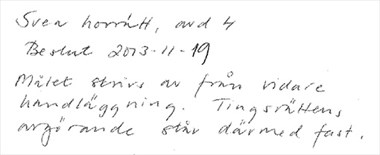 Svea hovrätt, avd 4
Beslut 2013-11-19
Målet skrivs av från vidare
handläggning. Tingsrättens
avgörande står därmed fast.